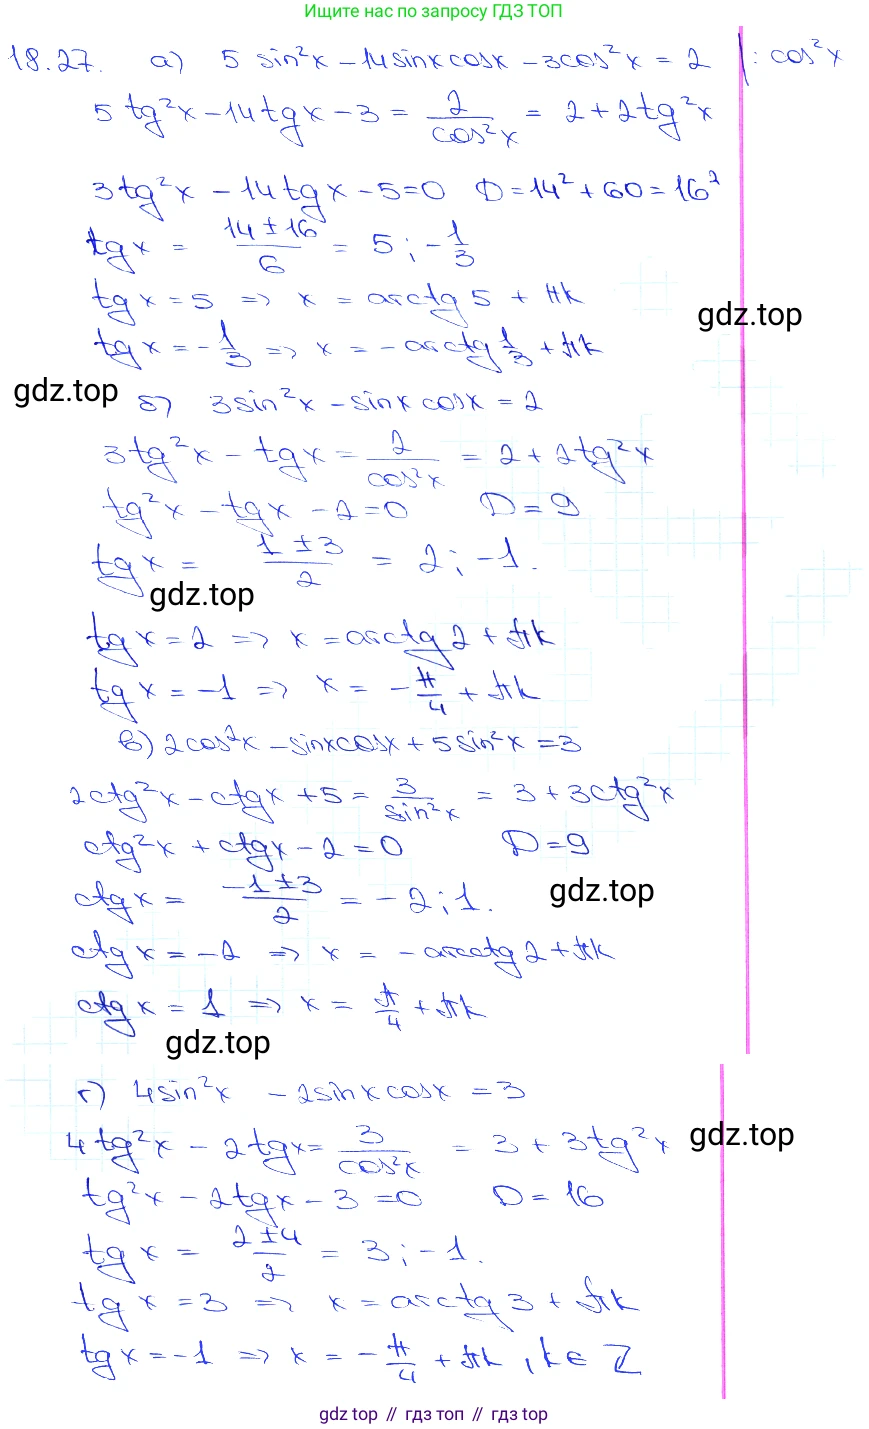 Ищите нас по запросу ГДЗ ТОП
18.27. а) 5 sin²x - 14 sinx cosx - 3cos²x = 2 |: cos²x
5 tg²x - 14 tgx - 3 = 2/cos²x = 2 + 2tg²x
3tg²x - 14 tgx - 5 = 0 D = 14² + 60 = 16²
tgx = (14 ± 16)/6 = 5; -1/3
gdz.top
tgx = 5 => x = arctg 5 + πk
tgx = -1/3 => x = -arctg 1/3 + πk
gdz.top
б) 3sin²x - sinx cosx = 2
3tg²x - tgx = 2/cos²x = 2 + 2tg²x
tg²x - tgx - 2 = 0 D = 9
tgx = (1 ± 3)/2 = 2; -1.
gdz.top
tgx = 2 => x = arctg 2 + πk
tgx = -1 => x = -π/4 + πk
в) 2cos²x - sinxcosx + 5sin²x = 3
2ctg²x - ctgx + 5 = 3/sin²x = 3 + 3ctg²x
ctg²x + ctgx - 2 = 0 D = 9
ctgx = (-1 ± 3)/2 = -2; 1.
gdz.top
ctgx = -2 => x = -arcctg 2 + πk
ctgx = 1 => x = π/4 + πk
gdz.top
г) 4sin²x - 2sinxcosx = 3
4tg²x - 2tgx = 3/cos²x = 3 + 3tg²x
gdz.top
tg²x - 2tgx - 3 = 0 D = 16
tgx = (2 ± 4)/2 = 3; -1.
tgx = 3 => x = arctg 3 + πk
tgx = -1 => x = -π/4 + πk, k ∈ Z
gdz top // гдз топ // gdz top